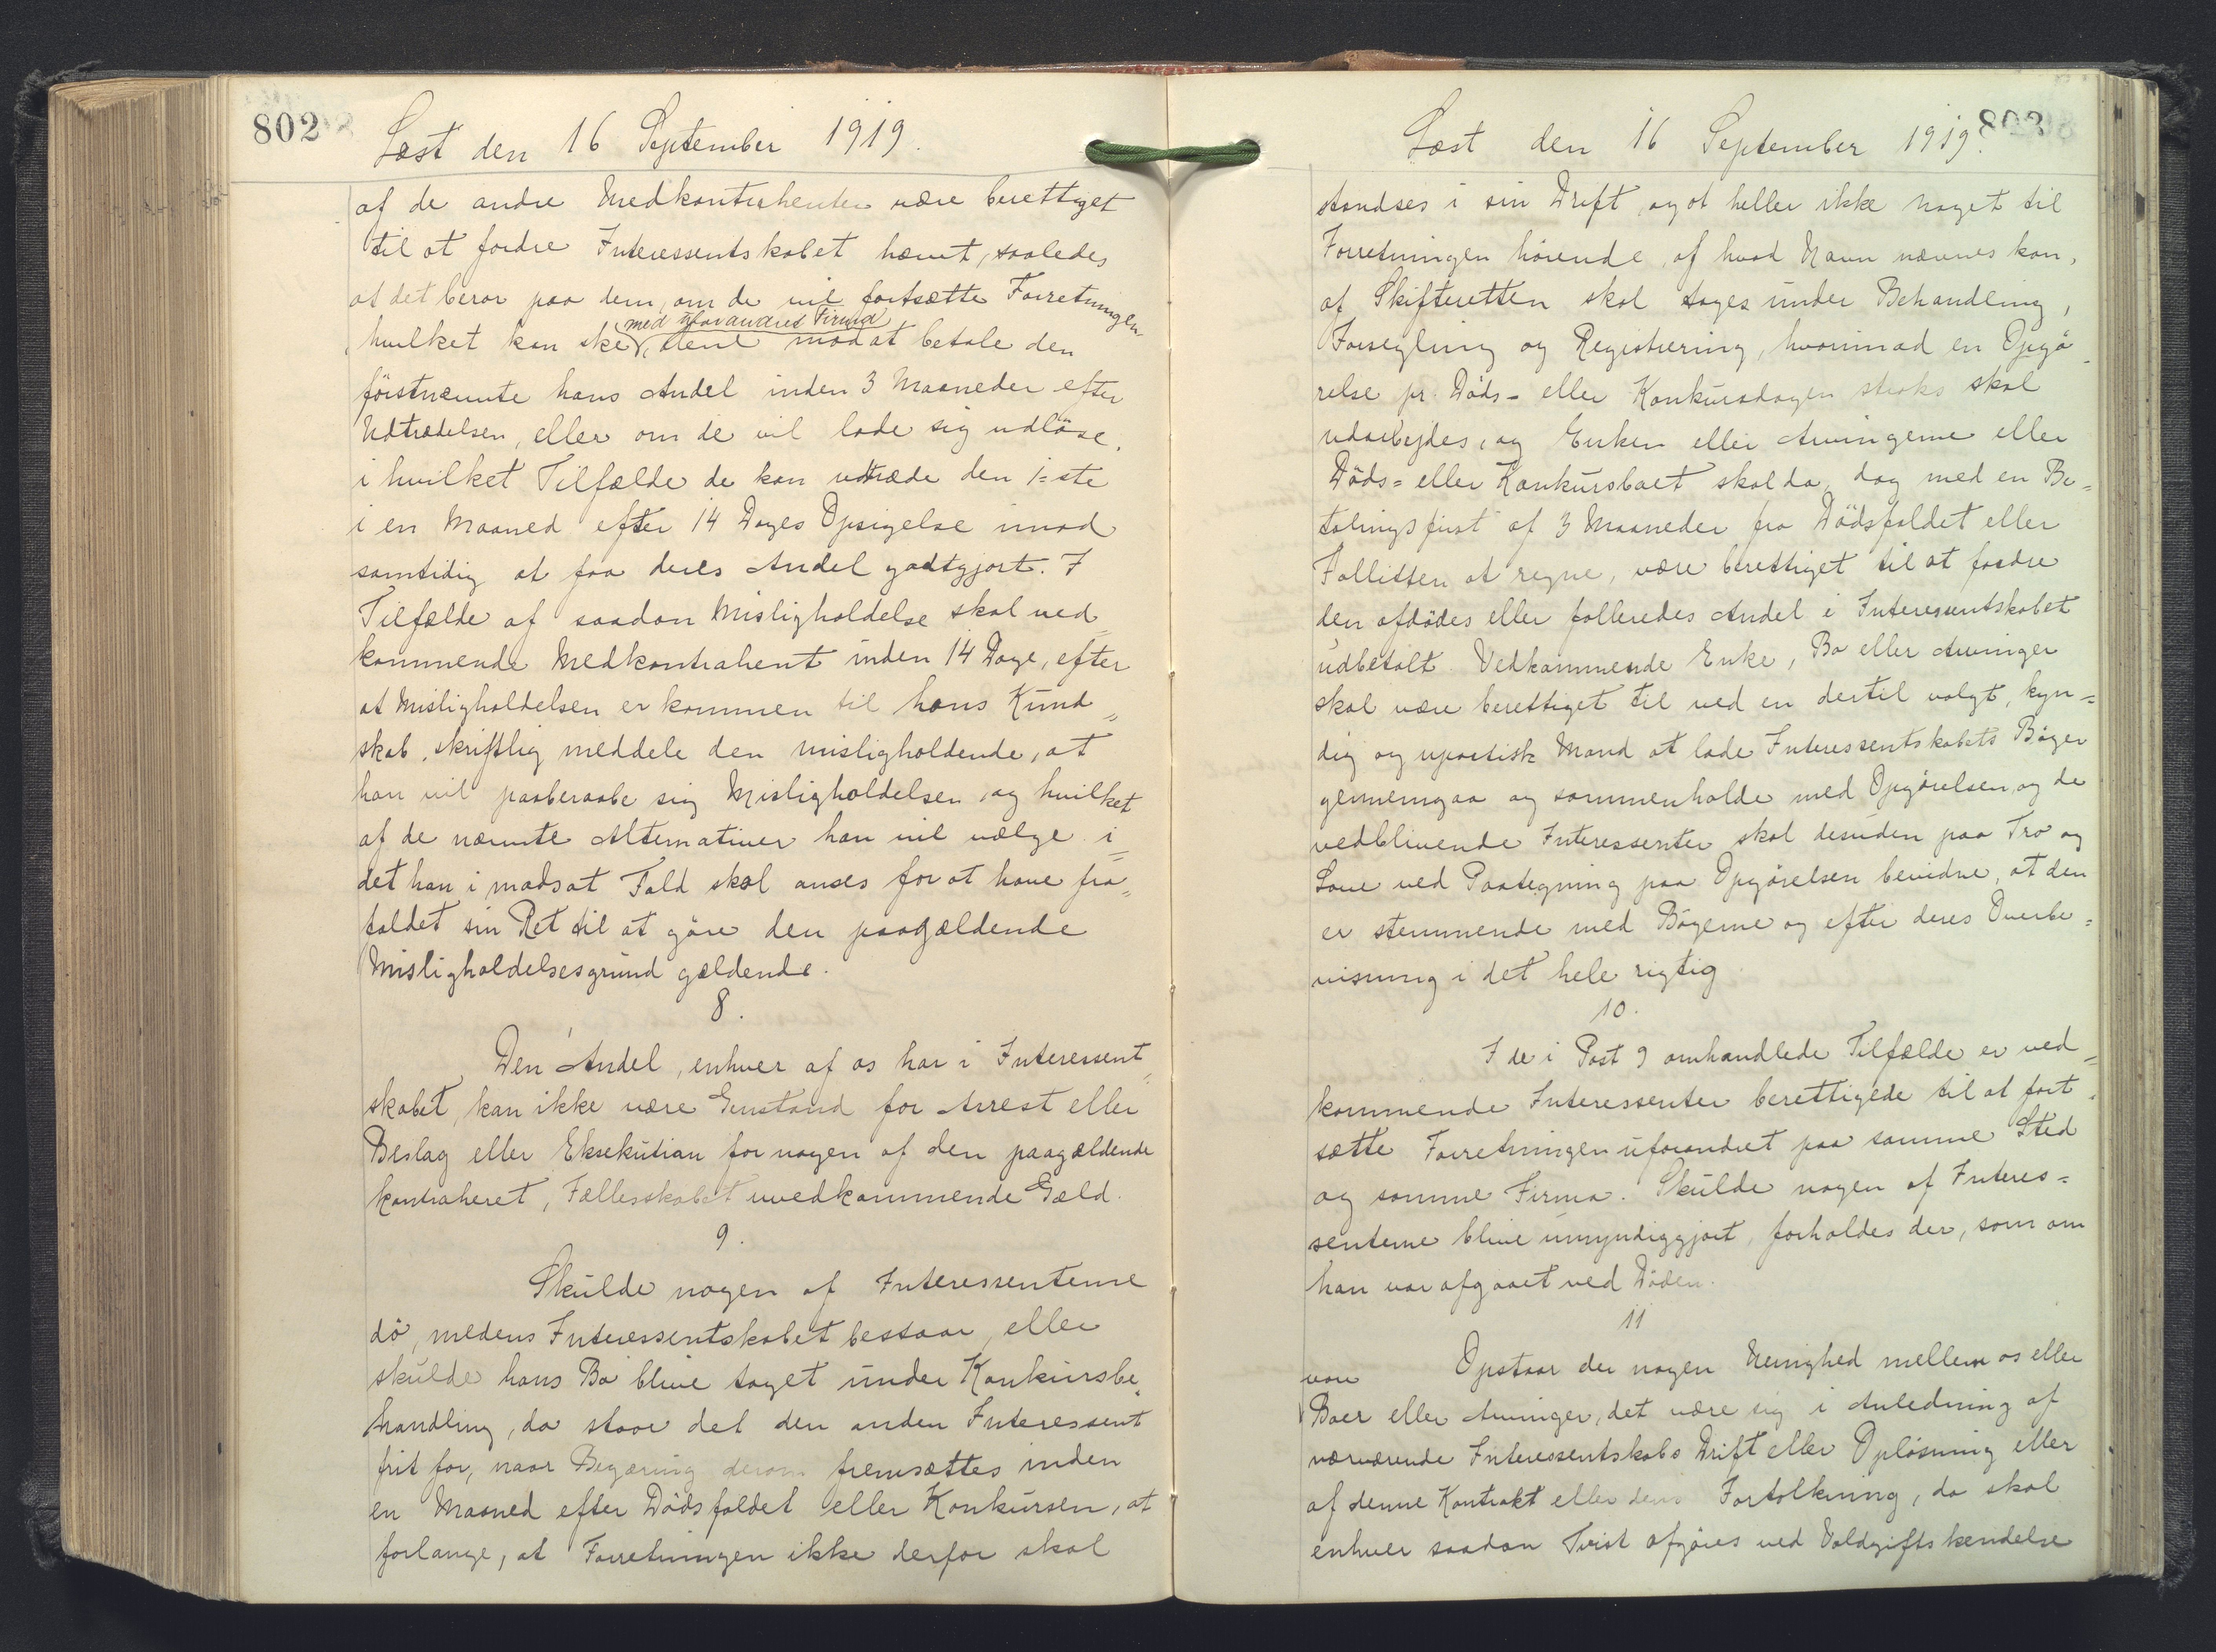 802
Læst den 16 September 1919.
af de andre Medkontrahenter være berettiget
til at fordre Interessentskabet hævet, saaledes
at det beror paa dem, om de vil fortsætte Forretningen
med uforandret Firma
hvilket kan ske, mod at betale den
förstnævnte hans Andel inden 3 Maaneder efter
Udtrædelsen, eller om de vil lade sig udlöse,
i hvilket Tilfælde de kan udtræde den 1=ste
i en Maaned efter 14 Dages Opsigelse imod
samtidig at faa deres Andel godtgjort. I
Tilfælde af saadan Misligholdelse skal ved=
kommende Medkontrahent inden 14 Dage, efter
at Misligholdelsen er kommen til hans Kund=
skab, skriftlig meddele den misligholdende, at
han vil paaberaabe sig Misligholdelsen, og hvilket
af de nævnte Alternativer han vil vælge i=
det han i modsat Fald skal anses for at have fra=
faldet sin Ret til at göre den paagældende
Misligholdelsesgrund gældende.
8.
Den Andel, enhver af os har i Interessent=
skabet, kan ikke være Genstand for Arrest eller
Beslag eller Eksekution for nogen af den paagældende
kontraheret, Fællesskabet uvedkommende Gæld.
9.
Skulde nogen af Interessenterne
dö, medens Interessentskabet bestaar, eller
skulde hans Bo blive taget under Konkursbe=
handling, da staar det den anden Interessent
frit for, naar Begæring derom fremsættes inden
en Maaned efter Dödsfaldet eller Konkursen, at
forlange, at Forretningen ikke derfor skal
803
Læst den 16 September 1919.
standses i sin Drift, og at heller ikke noget til
Forretningen hörende, af hvad Navn nævnes kan,
af Skifteretten skal tages under Behandling,
Forsegling og Registrering, hvorimod en Opgö=
relse pr. Döds- eller Konkursdagen straks skal
udarbejdes, og Enken eller Arvingerne eller
Döds= eller Konkursboet skal da, dog med en Be=
talingsfrist af 3 Maaneder fra Dödsfaldet eller
Fallitten at regne, være berettiget til at fordre
den afdödes eller falleredes Andel i Interessentskabet
udbetalt. Vedkommende Enke, Bo eller Arvinger
skal være berettiget til ved en dertil valgt, kyn=
dig og upartisk Mand at lade Interessentskabets Böger
gennemgaa og sammenholde med Opgörelsen, og de
vedblivende Interessenter skal desuden paa Tro og
Love ved Paategning paa Opgörelsen bevidne, at den
er stemmende med Bögerne og efter deres Overbe=
visning i det hele rigtig
10.
I de i Post 9 omhandlede Tilfælde er ved=
kommende Interessenter berettigede til at fort=
sætte Forretningen uforandret paa samme Sted
og samme Firma. Skulde nogen af Interes=
senterne blive umyndiggjort, forholdes der, som om
han var afgaaet ved Döden.
11
Opstaar der nogen Uenighed mellem os eller
vore
Boer eller Arvinger, det være sig i Anledning af
nærværende Interessentskabs Drift eller Oplösning eller
af denne Kontrakt eller dens Fortolkning, da skal
enhver saadan Tvist afgöres ved Voldgiftskendelse